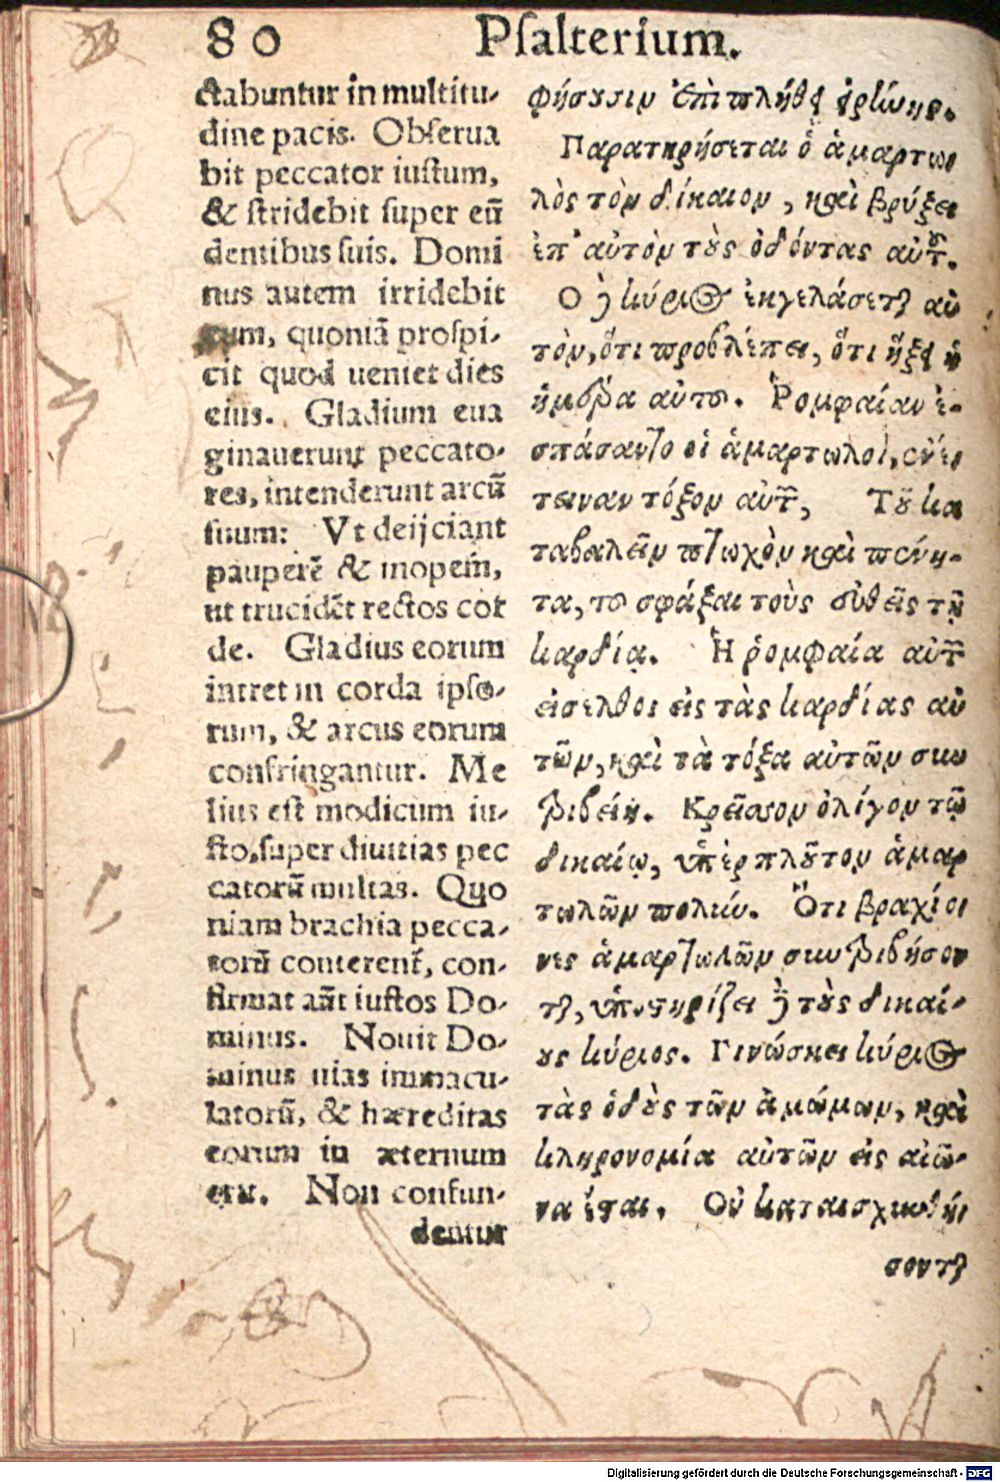 80 Psalterium.
ctabuntur in multitu-
dine pacis. Obserua
bit peccator iustum,
& stridebit super eū
dentibus suis. Domi
nus autem irridebit
eum, quoniā prospi-
cit quod ueniet dies
eius. Gladium eua
ginauerunt peccato-
res, intenderunt arcū
suum: Vt deijciant
pauperē & inopem,
ut trucidēt rectos cor
de. Gladius eorum
intret in corda ipso-
rum, & arcus eorum
confringantur. Me
lius est modicum iu-
sto, super diuitias pec
catorū multas. Quo
niam brachia pecca-
torū conterent̃, con-
firmat aūt iustos Do-
minus. Nouit Do-
minus uias immacu-
latorū, & hæreditas
eorum in æternum
erit. Non confun-
dentur
φήσουσιν ἐπὶ πλήθει εἰρήνης.
Παρατηρήσεται ὁ ἁμαρτω
λὸς τὸν δίκαιον, καὶ βρύξει
ἐπ' αὐτὸν τοὺς ὀδόντας αὐτοῦ.
Ο δὲ κύριος ἐκγελάσεται αὐ
τὸν, ὅτι προβλέπει, ὅτι ἥξει ἡ
ἡμέρα αὐτοῦ. Ῥομφαίαν ἐ-
σπάσαντο οἱ ἁμαρτωλοὶ, ἐνέ
τειναν τόξον αὐτῶν, Τοῦ κα
ταβαλεῖν πτωχὸν καὶ πένη-
τα, τοῦ σφάξαι τοὺς εὐθεῖς τῇ
καρδίᾳ. Ἡ ῥομφαία αὐτῶν
εἰσέλθοι εἰς τὰς καρδίας αὐ
τῶν, καὶ τὰ τόξα αὐτῶν συν
τριβείη. Κρεῖσσον ὀλίγον τῷ
δικαίῳ, ὑπὲρ πλοῦτον ἁμαρ
τωλῶν πολύν. Ὅτι βραχίο
νες ἁμαρτωλῶν συντριβήσον
ται, ὑποστηρίζει δὲ τοὺς δικαί-
ους κύριος. Γινώσκει κύριος
τὰς ὁδοὺς τῶν ἀμώμων, καὶ
κληρονομία αὐτῶν εἰς αἰῶ-
να ἔσται. Οὐ καταισχυνθή
σονται
Digitalisierung gefördert durch die Deutsche Forschungsgemeinschaft - DFG